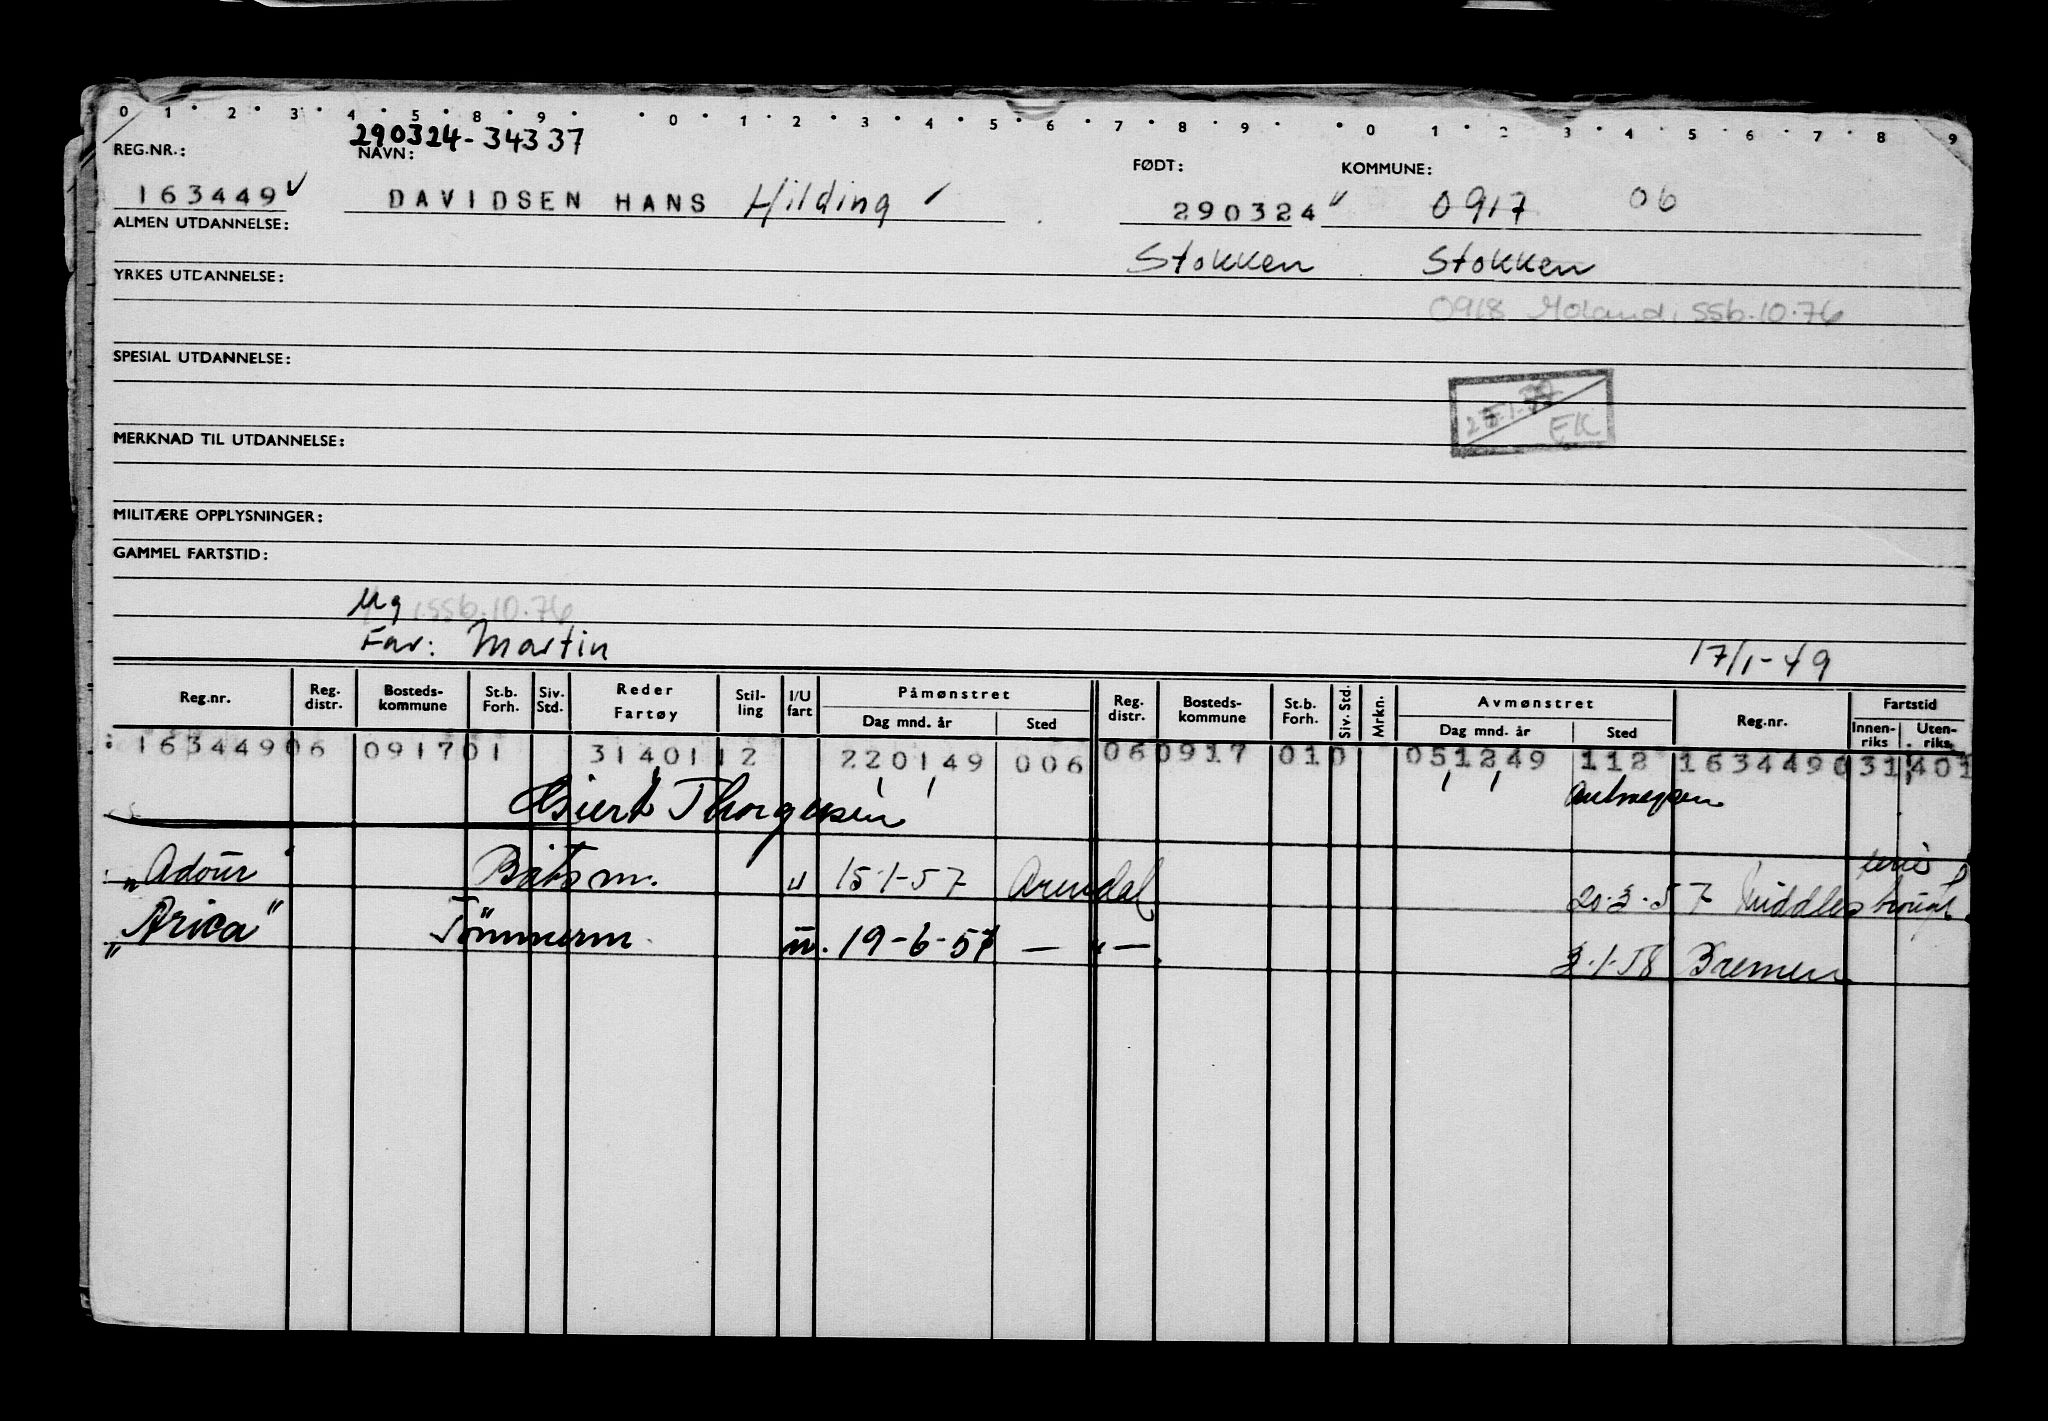 0 1 2 3 4 5 8 9 0 1 2 3 4 5 6 7 8 9 0 1 2 3 4 5 6 7 8 9
290324-34337
REG.NR.: NAVN: FØDT: KOMMUNE:
163449 DAVIDSEN HANS Hilding 290324 0917 06
ALMEN UTDANNELSE:
Stokken Stokken
YRKES UTDANNELSE:
0918 Moland, ssb.10.76
SPESIAL UTDANNELSE:
EK
MERKNAD TIL UTDANNELSE:
MILITÆRE OPPLYSNINGER:
GAMMEL FARTSTID:
Ug ssb.10.76
Far: Martin
17/1-49
Reg.nr. Reg. distr. Bosteds-kommune St.b. Forh. Siv. Std. Reder Fartøy Stil-ling I/U fart Påmønstret Dag mnd. år Sted Reg. distr. Bosteds-kommune St.b. Forh. Siv. Std. Mrkn. Avmønstret Dag mnd. år Sted Reg.nr. Fartstid Innen-riks Uten-riks
163449 06 0917 01 31401 12 220149 006 06 0917 010 051249 112 163449 0 31 401
Thorgersen Antwerpen
"Adour" Båtsm. " 15-1-57 Arendal 20.3.57 Middlesbrough
"Arica" Tømmerm. u. 19-6-57 — " — 3.1.58 Bremen